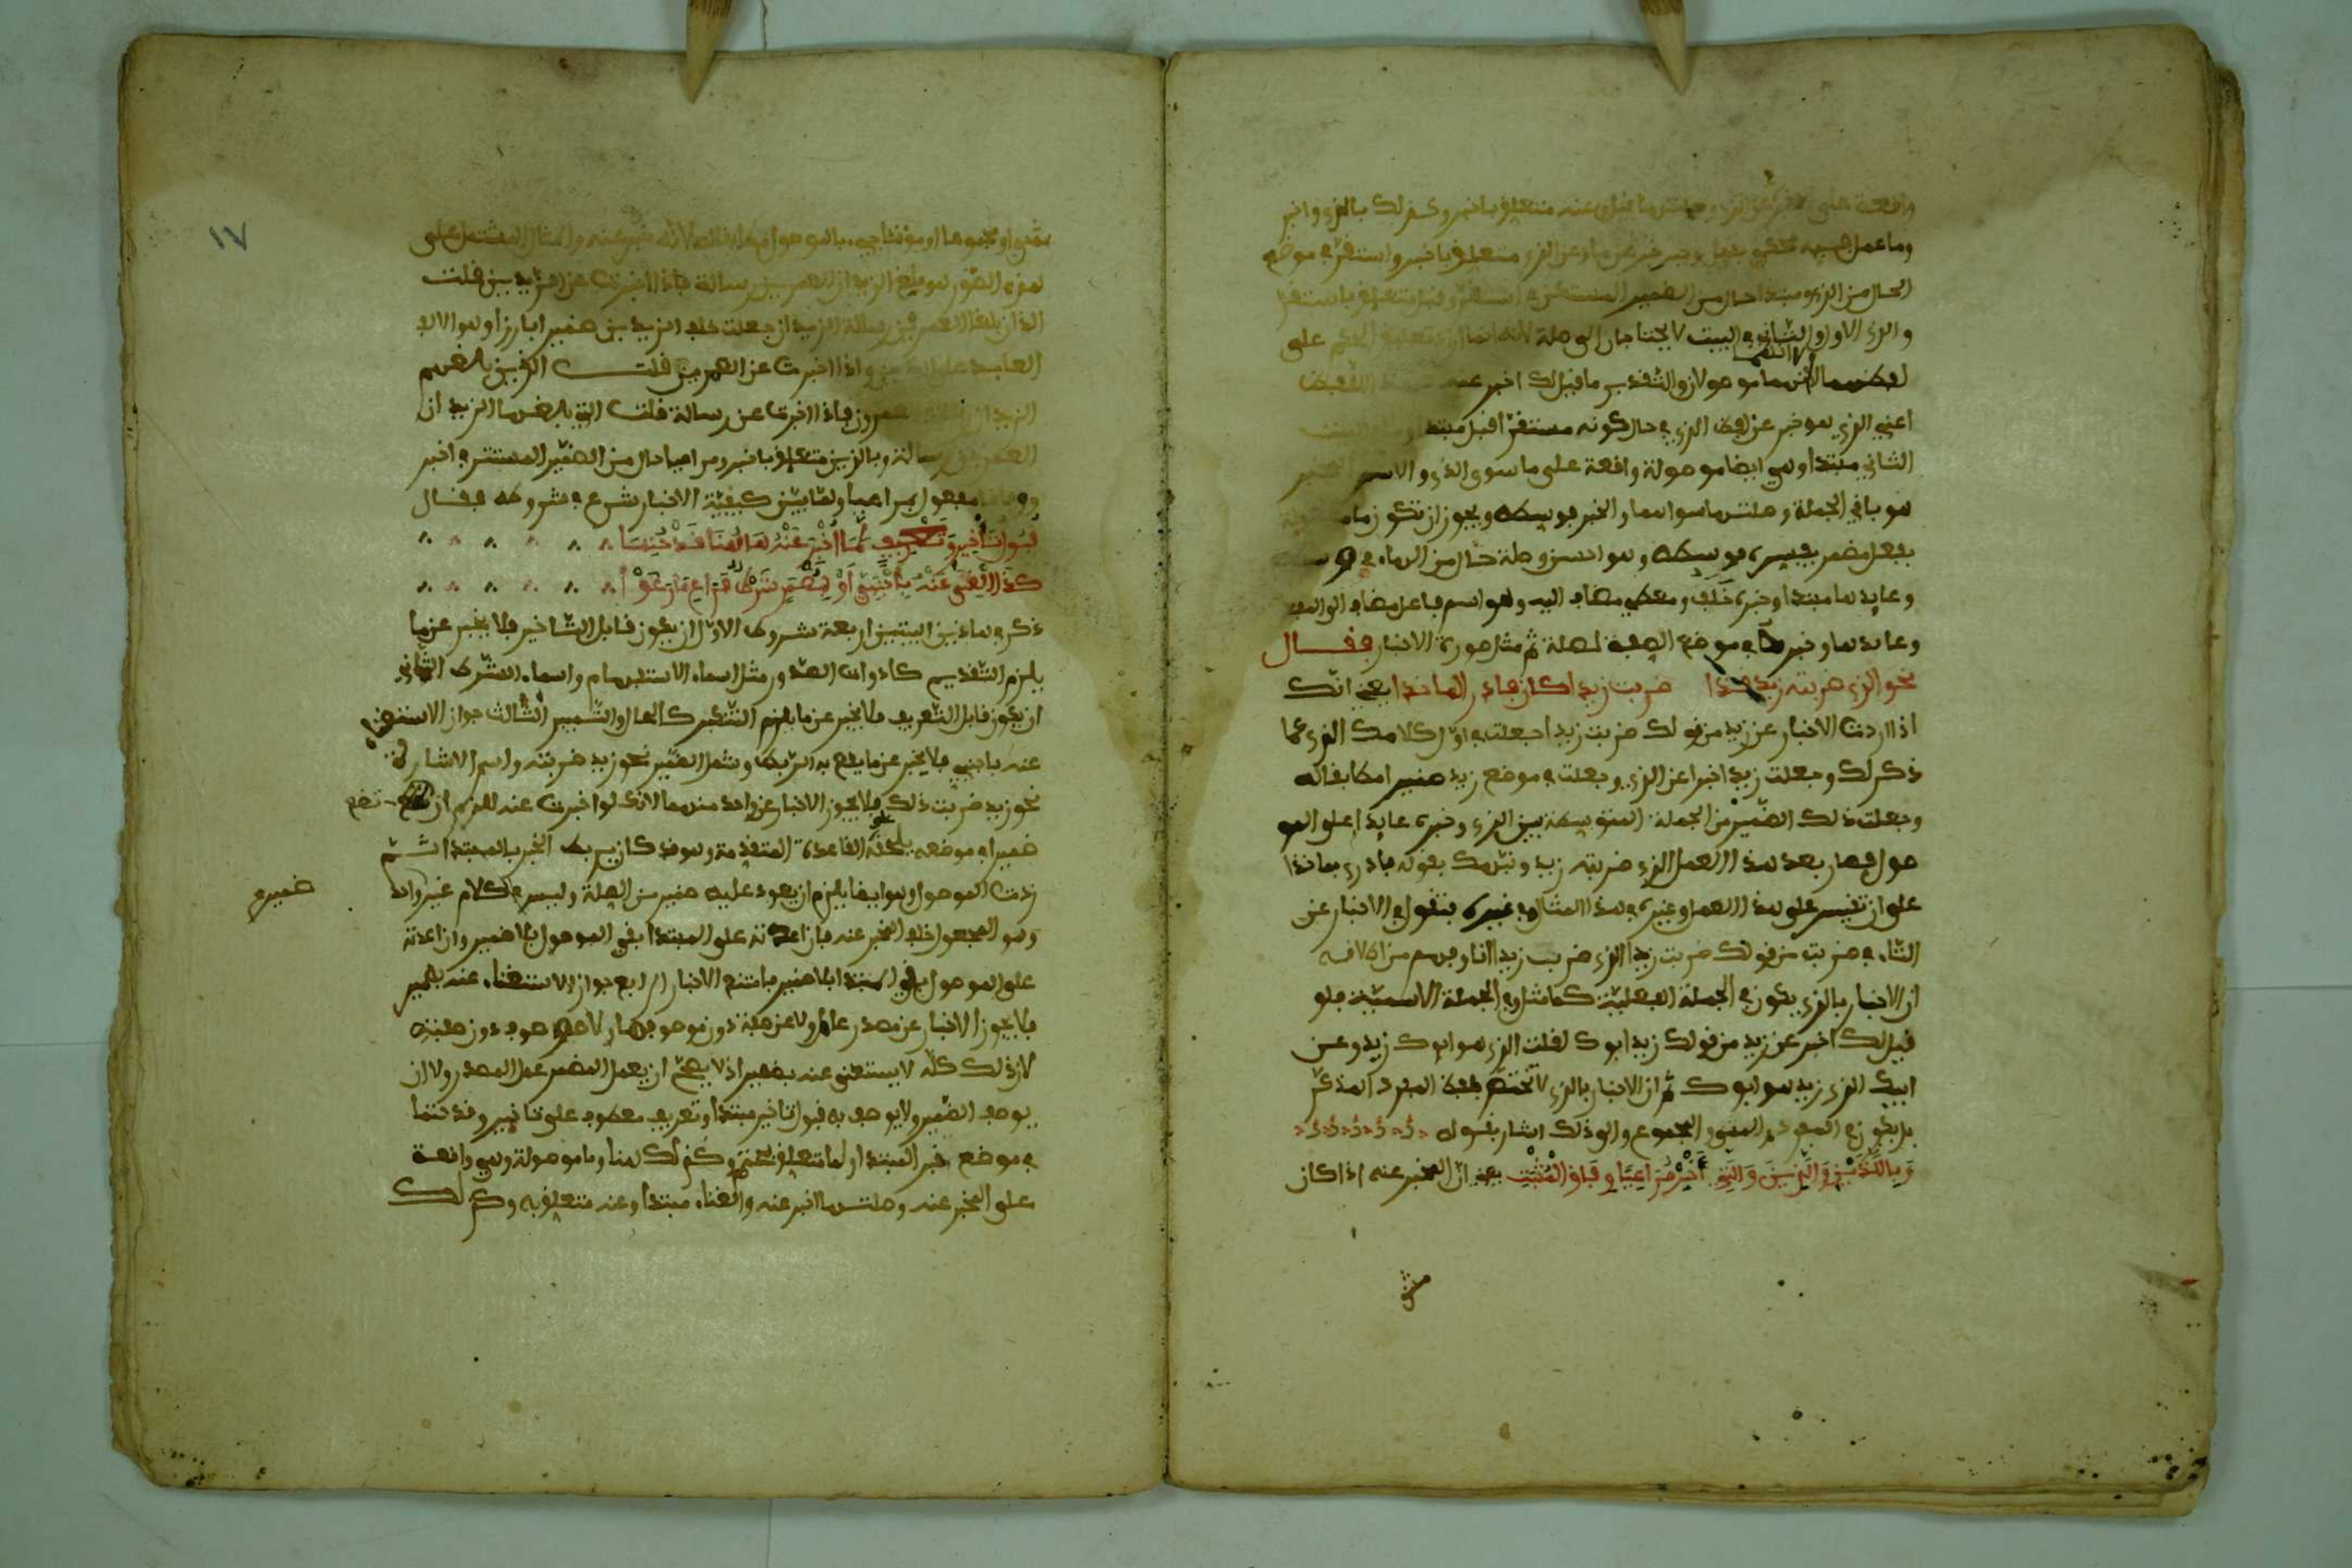 وما عمل فيه
الحال من الذي ومبتدا حال من الضمير المستكن في استقر وقيل متعلق باستقر
والذي الاول والثاني في البيت لا يحتاجان الى صلة لانه انما اراد تعليق الحكم على
لفظهما لا انهما موصولان والتقدير ما قيل لك اخبر عنه
اعني الذي هو خبر عن لفظ الذي في حال كونه مستقرا قبل مبتدا
الثاني مبتدا وهي ايضا موصولة واقعة على ما سوى الذي والاسم
هو باقي الجملة وصلتها سواهما والخبر فوسطه ويجوز ان تكون ما
بفعل مضمر يفسره فوسطه وهو احسن وصلة حال من الهاء في فوسطه
وعايدها مبتدا وخبره خلف ومعطي مضاف اليه وهو اسم فاعل مضاف الى
وعايدها وخبرها في موضع الصفة لصلة ثم مثل صورة الاخبار فقال
نحو الذي ضربته زيد فذا ضربت زيدا كان فادر الماخذا يعني انك
اذا اردت الاخبار عن زيد من قولك ضربت زيدا جعلت في اول كلامك الذي كما
ذكر لك وجعلت زيدا خبرا عن الذي وجعلت في موضع زيد ضميرا مطابقا له
وجعلت ذلك الضمير من الجملة المتوسطة بين الذي وخبره عايدا على المو
صول فصار بعد هذا العمل الذي ضربته زيد ونبهك بقوله فادر الماخذا
على ان تقيس على هذا العمل وغيره في هذا المثال وغيره فتقول في الاخبار عن
التاء في ضربت من قولك ضربت زيدا الذي ضرب زيدا انا وفهم من اطلاقه
ان الاخبار بالذي يكون في الجملة الفعلية كما مثل وفي الجملة الاسمية فلو
قيل لك اخبر عن زيد من قولك زيد ابوك لقلت الذي هو ابوك زيد وعن
ابيك الذي زيد هو ابوك ثم ان الاخبار بالذي لا يختص بلفظ المفرد المذكر
بل يكون في المفرد والمثنى والمجموع والى ذلك اشار بقوله
وَبِاللَّذَيْنِ وَالَّذِينَ وَالَّتِي أَخْبِرْ مُرَاعِيًا وِفَاقَ الْمُثْبَتِ يعني ان المخبر عنه اذا كان
مثنى
١٧
مثنى او مجموعا او مؤنثا جيء بالموصول مطابقا له لانه خبر عنه والمثال المشتمل على
هذه الصور نحو بلغ الزيدان العمرين رسالة فاذا اخبرت عن الزيدين قلت
اللذان بلغا العمرين رسالة الزيدان جعلت خلف الزيدين ضميرا بارزا وهو الالف
العايد على اللذين واذا اخبرت عن العمرين قلت الذين بلغهم
الزيدان رسالة العمرون فاذا اخبرت عن رسالة قلت التي بلغها الزيدان
العمرين رسالة وباللذين متعلق باخبر ومراعيا حال من الضمير المستتر في اخبر
ووفاق مفعول بمراعيا ولما بين كيفية الاخبار شرع في شروطه فقال
قَبُولُ تَأْخِيرٍ وَتَعْرِيفٍ لِمَا أُخْبِرَ عَنْهُ هَاهُنَا قَدْ حُتِمَا
كَذَا الْغِنَى عَنْهُ بِأَجْنَبِيٍّ أَوْ بِمُضْمَرٍ شَرْطٌ فَرَاعِ مَا رَعَوْا
ذكر في هاذين البيتين اربعة شروط الاول ان يكون قابل التاخير فلا يخبر عن ما
يلزم التقديم كادوات الصدور مثل اسماء الاستفهام واسماء الشرط الثاني
ان يكون قابل التعريف فلا يخبر عن ما يلزم التنكير كالحال والتمييز الثالث جواز الاستغنا
عنه باجنبي فلا يخبر عن ما يقع به الربط وشمل الضمير نحو زيد ضربته واسم الاشارة
نحو زيد ضربت ذلك فلا يجوز الاخبار عن واحد منهما لانك لو اخبرت عنه للزم ان تضع
ضميرا في موضعه على القاعدة المتقدمة وهو قد كان يربط الخبر بالمبتدا ثم
زدت الموصول وهو ايضا يلزم ان يعود عليه ضمير من الصلة وليس في الكلام غير واحد
ضمير
وهو المجعول خلف المخبر عنه فان اعدته على المبتدا بقي الموصول بلا ضمير وان اعدته
على الموصول بقي المبتدا بلا ضمير فامتنع الاخبار الرابع جواز الاستغناء عنه بضمير
فلا يجوز الاخبار عن مصدر عامل ولا عن صفة دون موصوفها ولا موصوف دون صفته
لان ذلك كله لا يستغنى عنه بضمير اذ لا يصح ان يعمل المضمر عمل المصدر ولا ان
يوصف الضمير ولا يوصف به فقبول تاخير مبتدا وتعريف معطوف على تاخير وقد حتما
في موضع خبر المبتدا ولما متعلق بحتم وكذلك هنا وما موصولة وهي واقعة
على المخبر عنه وصلتها اخبر عنه والغناء مبتدا وعنه متعلق به وكذلك